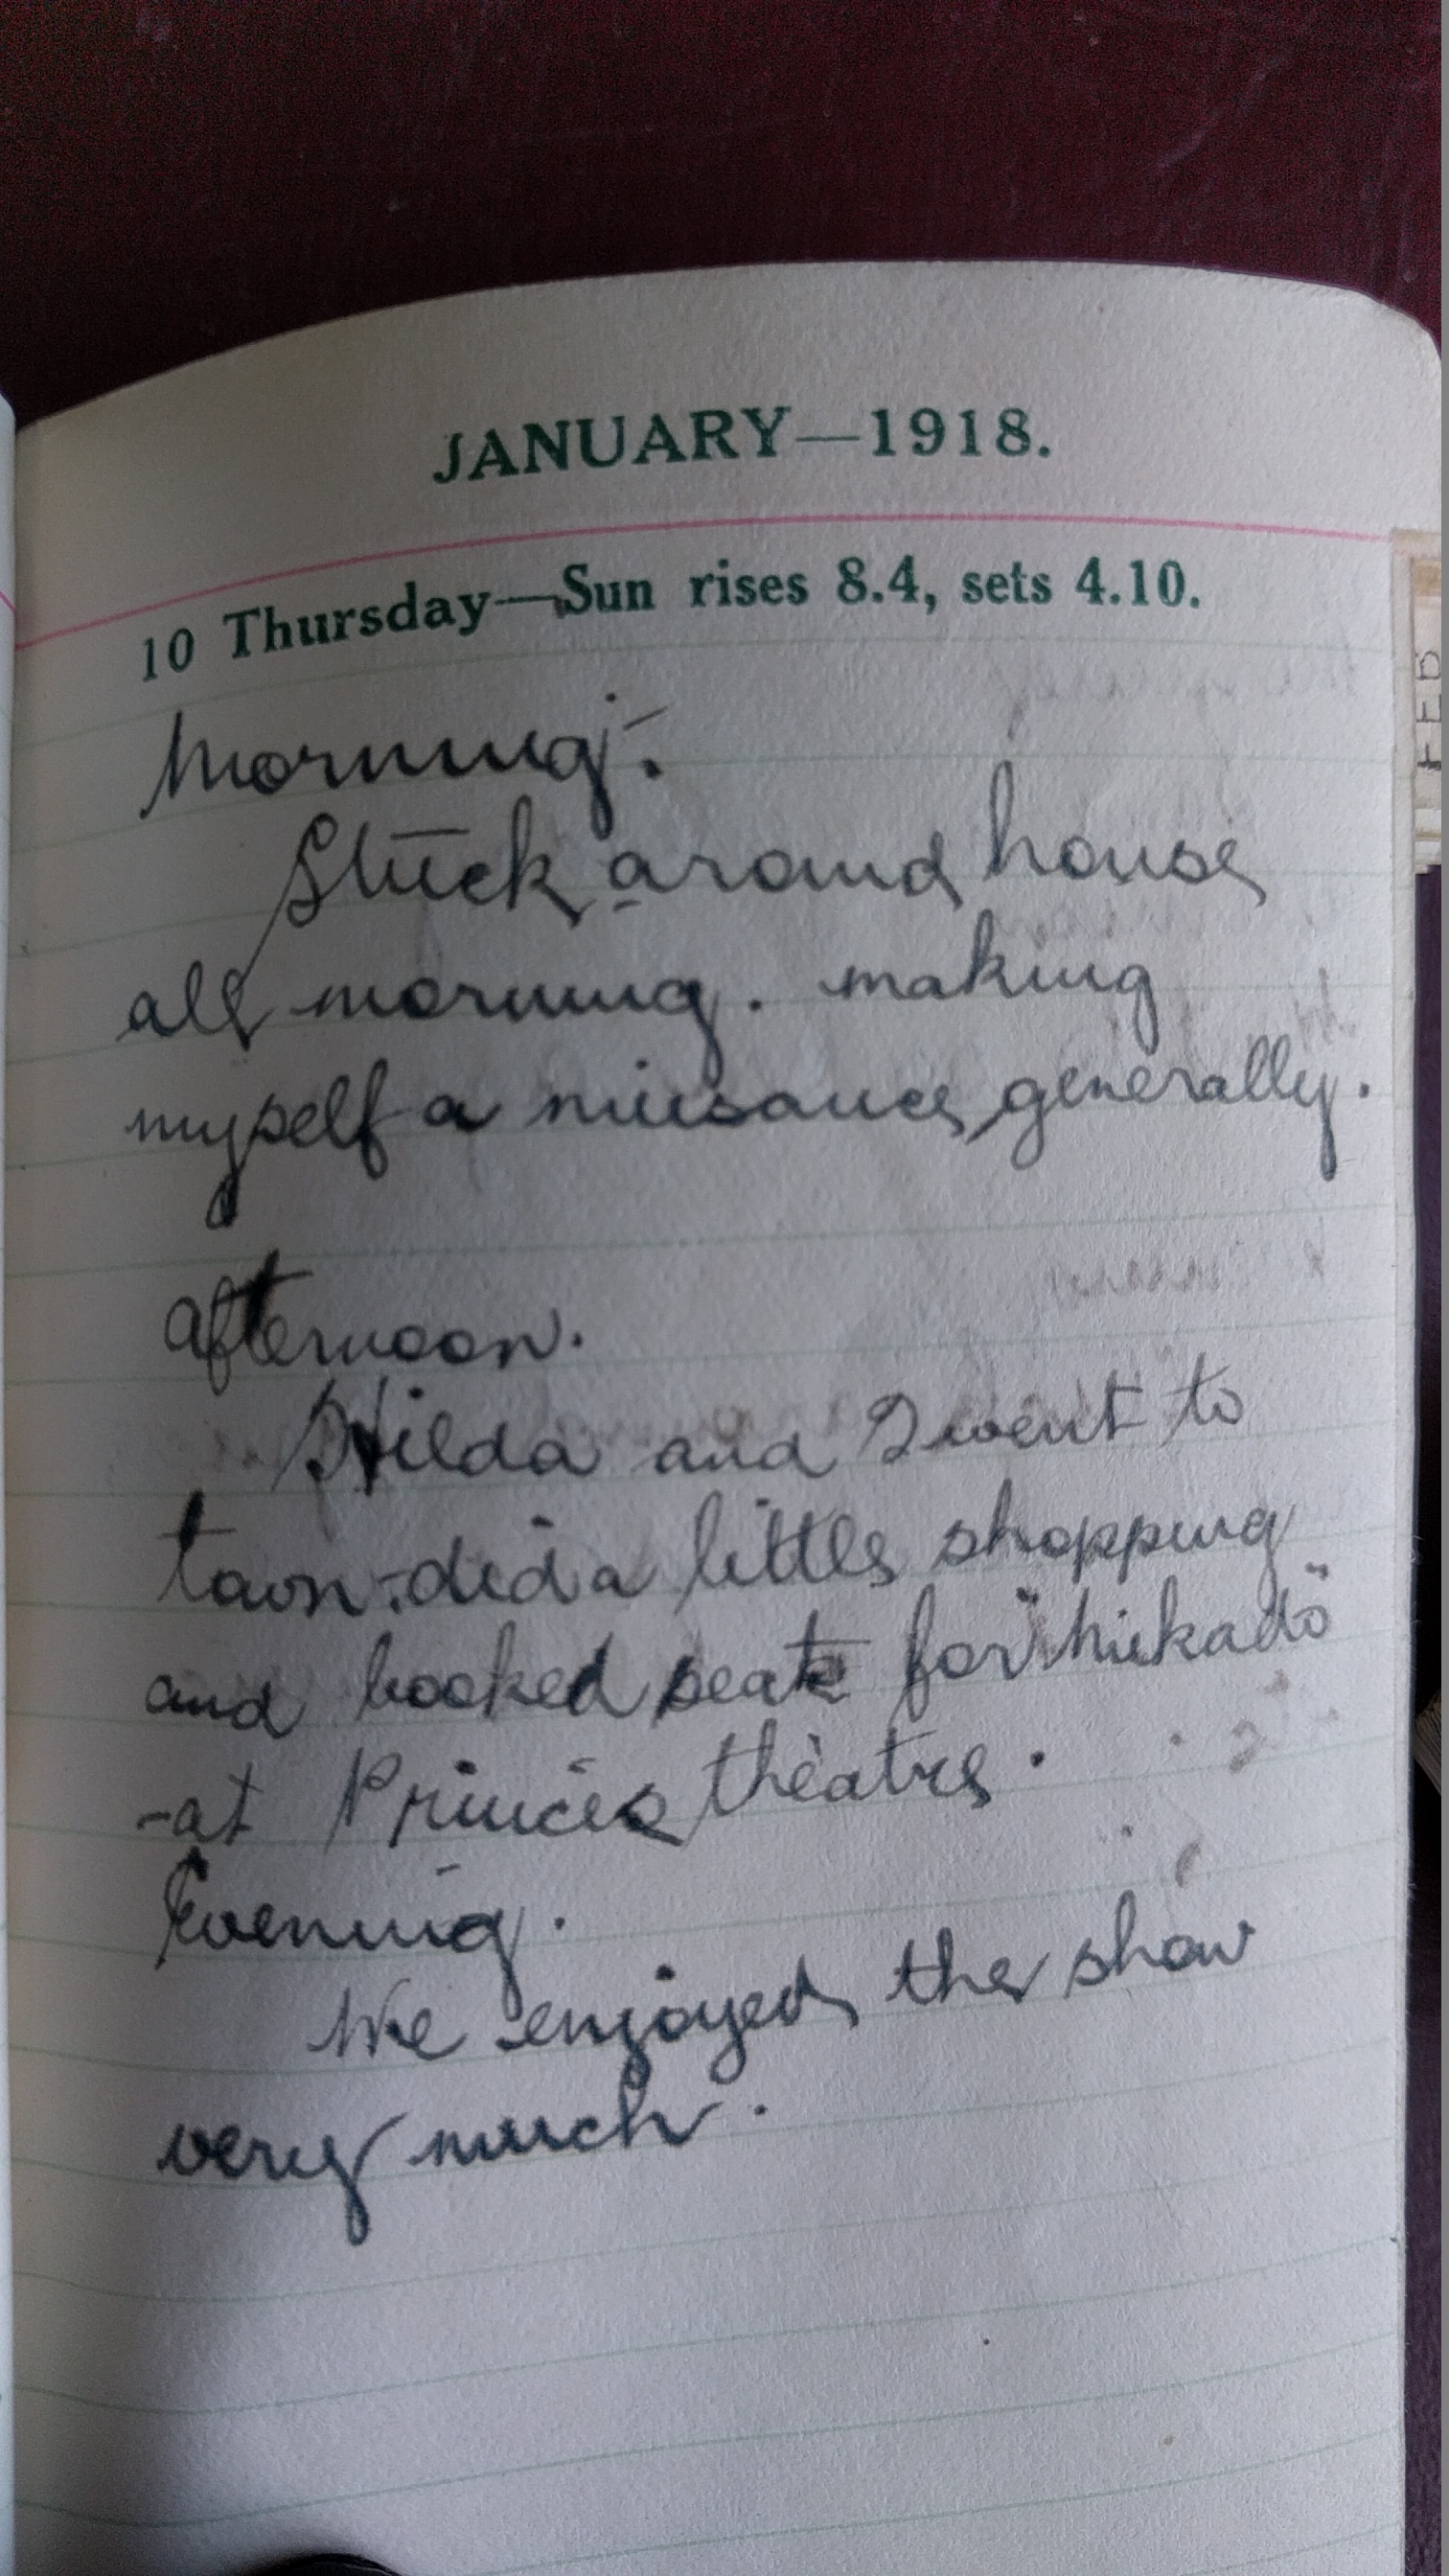 JANUARY—1918.
10 Thursday—Sun rises 8.4, sets 4.10.
Morning:
Stuck around house
all morning. making
myself a niusance generally.
afternoon.
Hilda and I went to
town. did a little shopping
and booked seats for "Mikado"
-at Princes theatre.
Evening.
We enjoyed the show
very much.